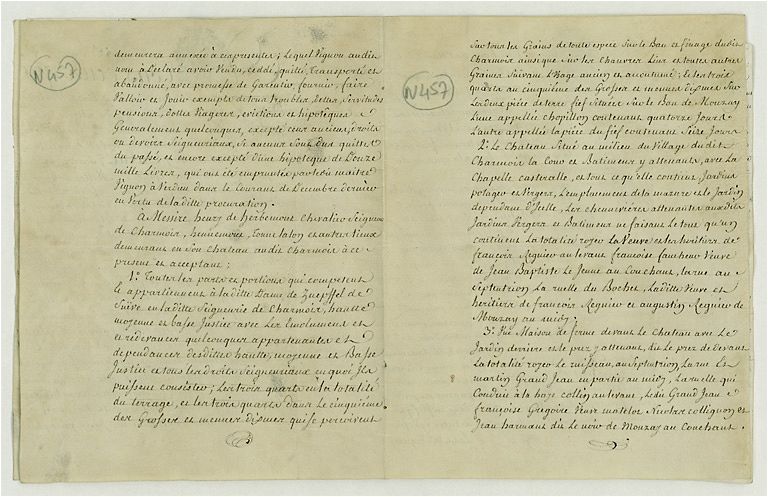 N457
demeurera annexée à ces presentes; Lequel Vignon audit
nom a Declaré avoir Vendu, cedé, quitté, transporté et
abandonné, avec promesse de Garantir, fournir, faire
Valloir et Jouir exempte de tous troubles, dettes, Servitudes
pensions, dottes Viageres, evictions et hipoteques
Generalement quelconques, excepté ceux anciens droits
ou devoirs Seigneuriaux, Si aucuns Sont dus quittes
du passé, et encore excepté d'une hipoteque de Douze
mille Livres, qui ont eté empruntés par ledit maitre
Vignon à Verdun dans le Courant de Decembre dernier
en Vertu de laditte procuration.
A Messire henry de herbemont Chevalier Seigneur
de Charmoir, henriemont, tonne la ton et autres Lieux
demeurant en Son Chateau audit Charmoir à ce
present et acceptant;
1.° Toutes les parts et portions qui competent
et appartiennent à laditte Dame de Zuepffel de
Suive, en laditte Seigneurie de Charmoir, hautte
moyenne et basse Justice avec Les Emolumens et
et redevances quelconques appartenantes et
dependances desdites hautte, moyenne et Basse
Justice et tous les droits Seigneuriaux en quoi Ils
puissent consister; Les trois quarts en la totalité
du terrage, et les trois quarts dans le cinquième
des Grosses et menues dixmes qui se perçoivent
N457
Sur tous les Grains de toute espece Sur le Ban et finage dudit
Charmoir ainsi que Sur les Chanvres Lins et toutes autres
Graines Suivant L'Usage ancien et accoutumé; et les trois
quarts au cinquième des Grosses et menues dixmes Sur
Les deux pièces de terre fief Situées Sur le Ban de Mouzay
L'une appellée Chopillon contenant quatorze Jours
L'autre appellée la pièce du fief contenant Seize Jours
2.° Le Chateau Situé au milieu du Village dudit
Charmoir la Cour et Batimens y attenants, avec La
Chapelle castralle, et tout ce qu'elle contient, Jardins
potager et Vergers, L'emplacement de la mazure et le Jardin
dependant d'Icelle, Les chenevières attenantes auxdits
Jardins Vergers et Batimens ne faisant le tout qu'un
continent La totalité royer La Veuve et les heritiers de
françois Requier au levant francoise faucheux Veuve
de Jean Baptiste Le Jeune au Couchant, la rue au
Septentrion La ruelle du Bochet, La ditte Veuve et
heritiers de francois Requier et augustin Requier de
Mouzay au midy.
3.° Une Maison de ferme devant le Chateau avec Le
Jardin derriere et le prez y attenant, dit Le prez de devant
La totalité royer Le ruisseau, au Septentrion La rue Et
martin Grand Jean en partie au midy, La ruelle qui
Conduit à la haze collin au levant, Ledit Grand Jean
françoise Gregoire Veuve matelot Nicolas collignon et
Jean harmant dit Le noir de Mouzay au Couchant.